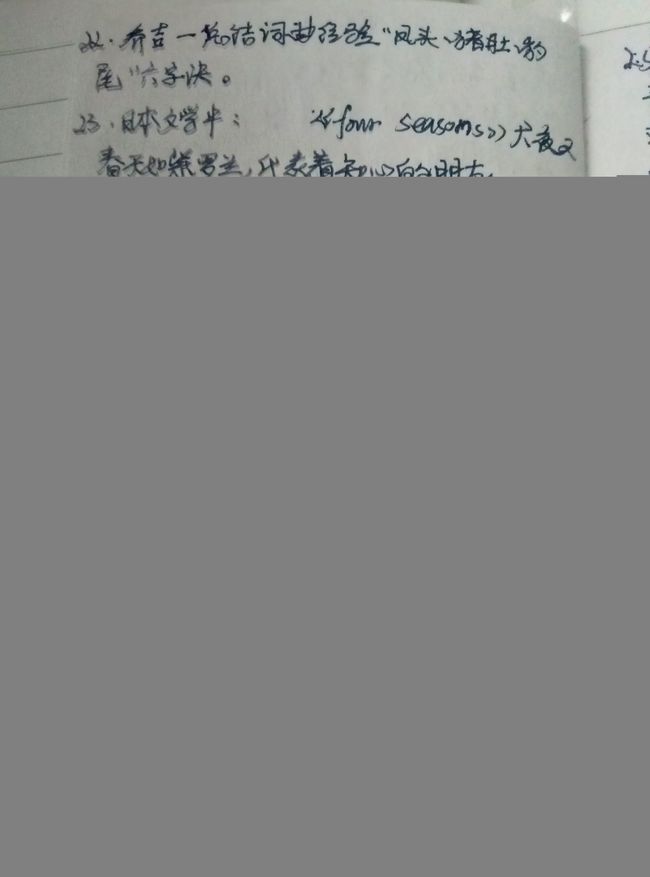 22. 乔吉一总结词曲经验"凤头、猪肚、豹
尾"六字决。
23. 日本文学中: 《four seasons》犬夜叉
春天如紫罗兰,代表着知心的朋友